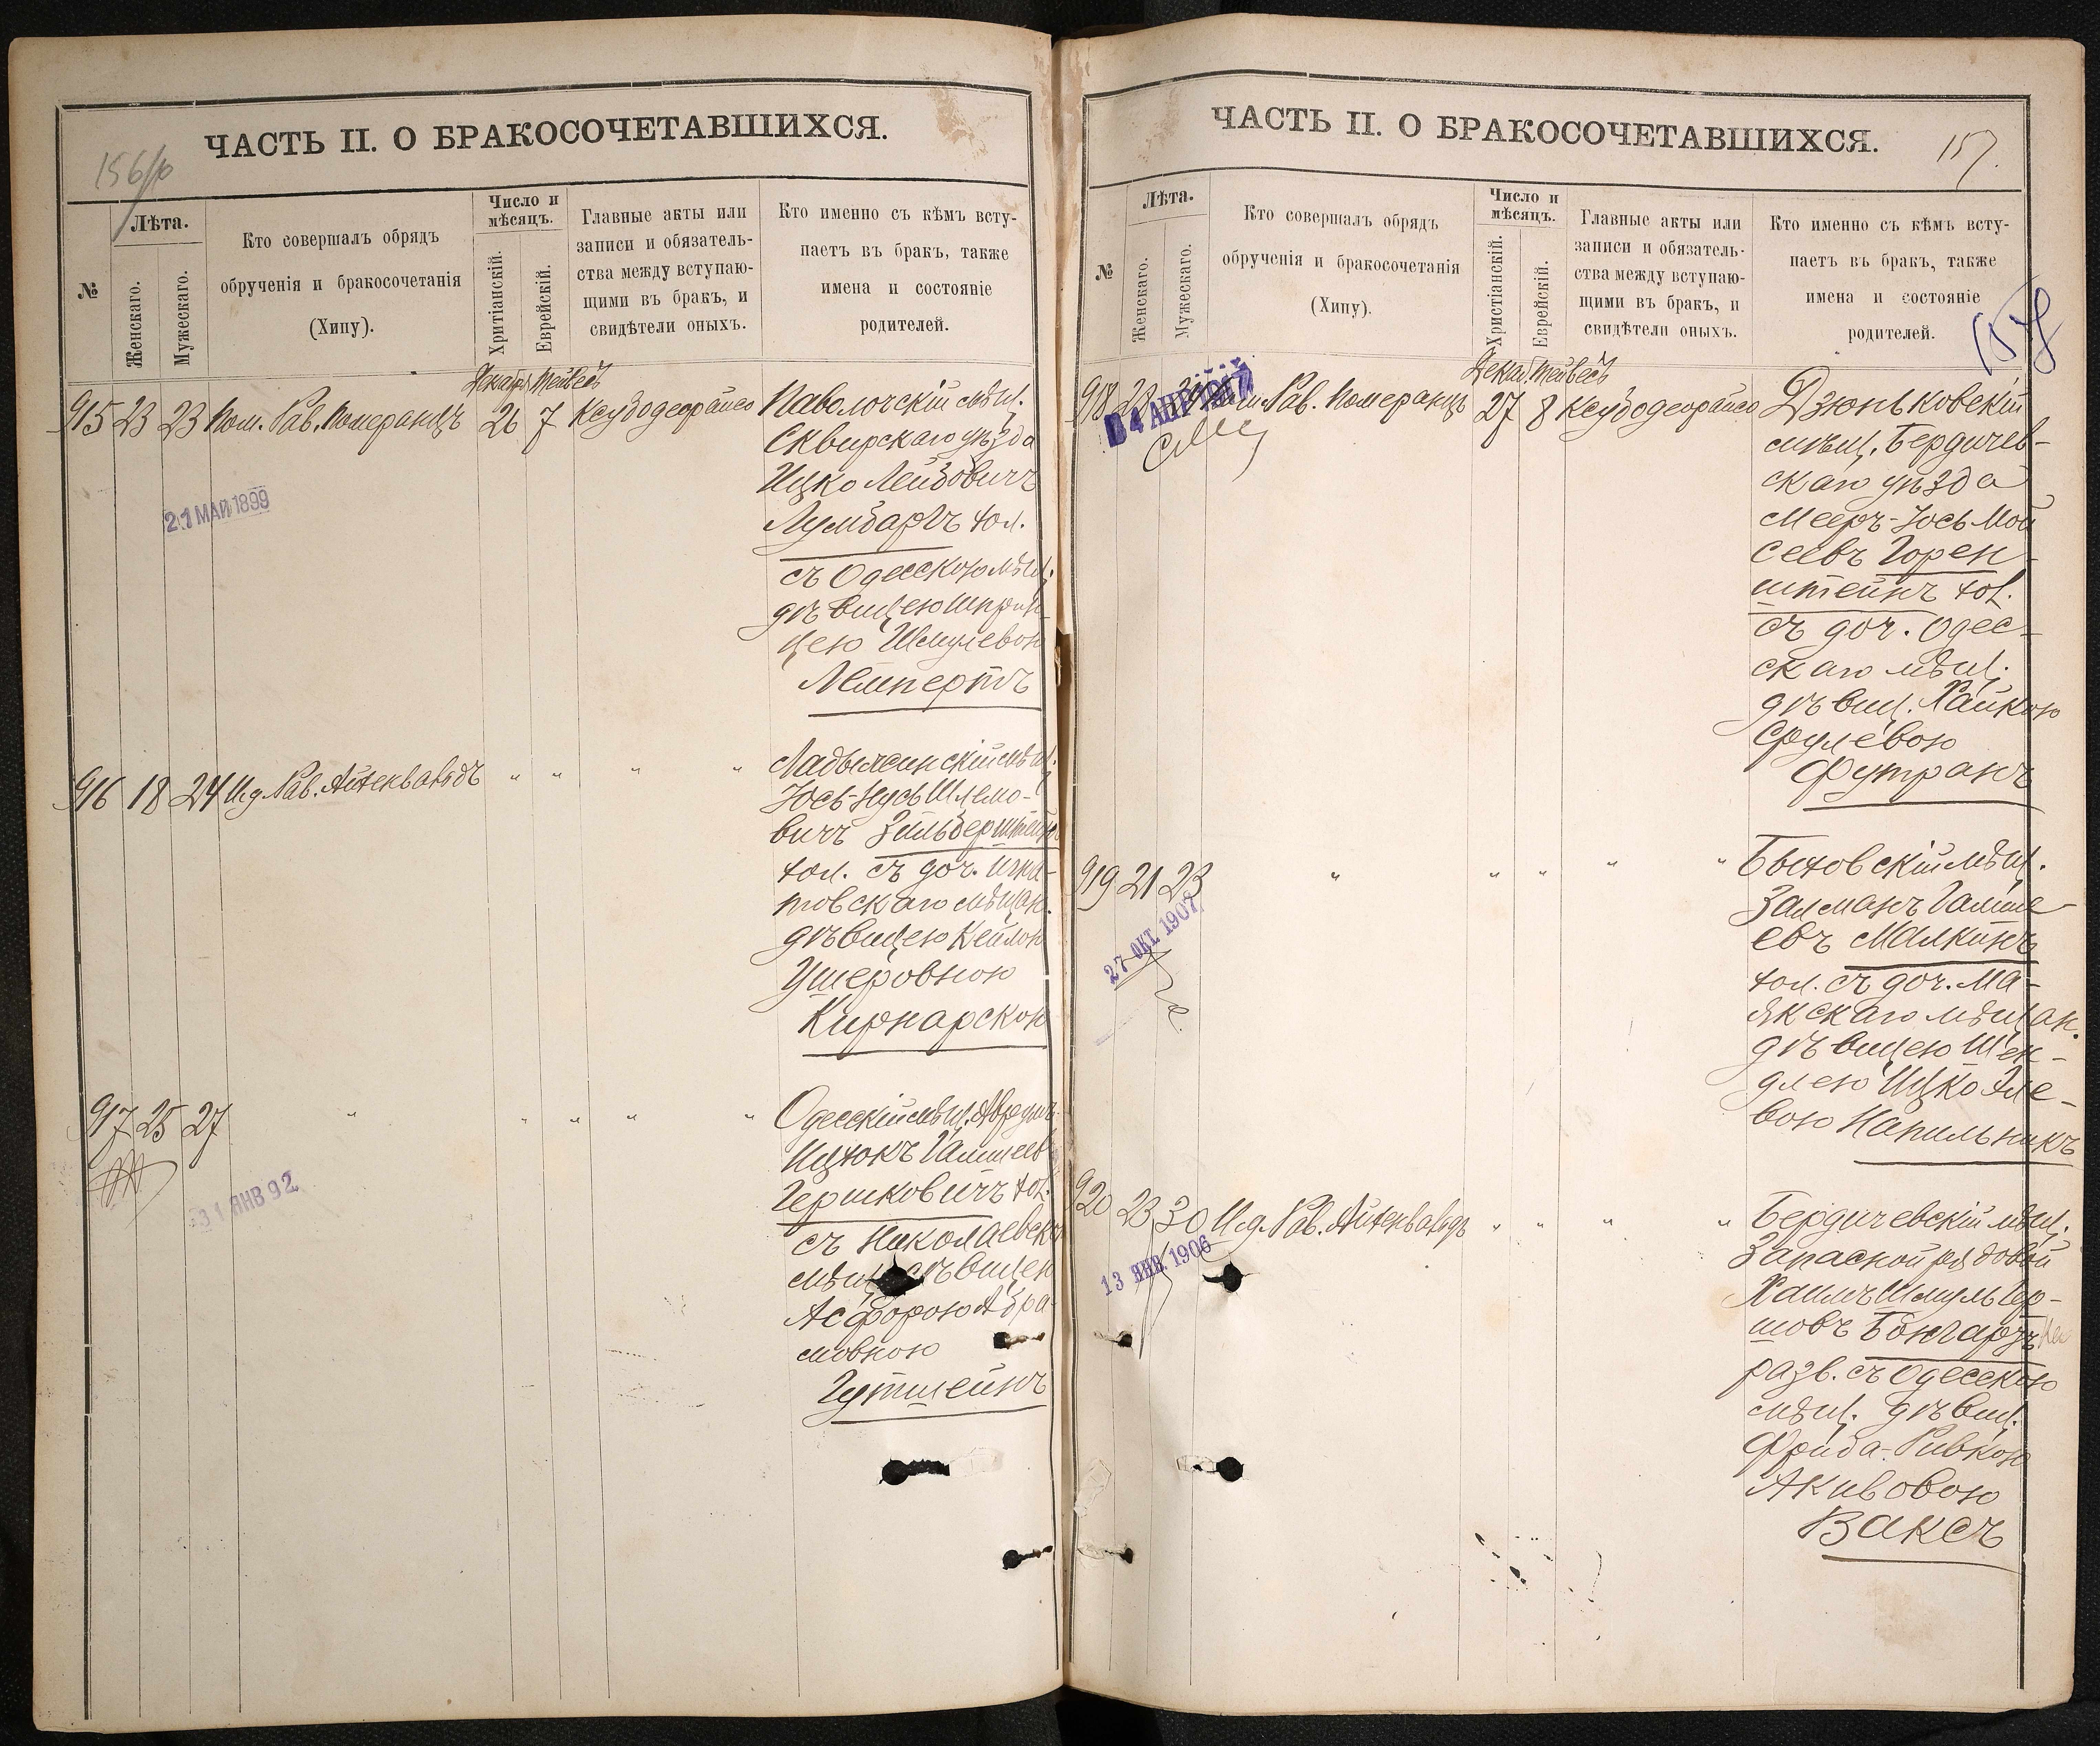 156/б
ЧАСТЬ II. О БРАКОСОЧЕТАВШИХСЯ.
№
Лѣта.
Женскаго.
Мужескаго.
Кто совершалъ обрядъ
обрученія и бракосочетанія
(Хипу).
Число и
мѣсяцъ.
Хритіанскій.
Еврейскій.
Главные акты или
записи и обязатель-
ства между вступаю-
щими въ бракъ, и
свидѣтели оныхъ.
Кто именно съ кѣмъ всту-
паетъ въ бракъ, также
имена и состояніе
родителей.
Декабря Тейвесъ
915 23 23 Пом. Рав. Померанцъ 26 7 Ксубодеорайсо
Паволочскій мѣщ.
Сквирскаго уѣзда
Ицко Лейбовичъ
Лумбаргъ хол.
съ Одесскою мѣщ.
дѣвицею Шприн-
цею Шмулевою
Лемпертъ
21 МАЙ 1899
916 18 24 И.д. Рав. Айхенвальдъ " " " "
Ладыжинскій мѣщ.
Юсь-Нусь Шлемо-
вичъ Зильберштейнъ
хол. съ доч. Игна-
товскаго мѣщан.
дѣвицею Кейлою
Ушеровною
Кирнарскою
917 25 27 " " " " "
Одесскій мѣщ. Аврумъ
Ицхокъ Гамшеев
Гершковичъ хол.
съ Николаевскою
мѣщ. дѣвицею
Асфорою Абра-
мовною
Гутшейнъ
31 ЯНВ 92
ЧАСТЬ II. О БРАКОСОЧЕТАВШИХСЯ.
157.
158
№
Лѣта.
Женскаго.
Мужескаго.
Кто совершалъ обрядъ
обрученія и бракосочетанія
(Хипу).
Число и
мѣсяцъ.
Христіанскій.
Еврейскій.
Главные акты или
записи и обязатель-
ства между вступаю-
щими въ бракъ, и
свидѣтели оныхъ.
Кто именно съ кѣмъ всту-
паетъ въ бракъ, также
имена и состояніе
родителей.
Декаб. Тейвесъ
918 23 Пом. Рав. Померанцъ 27 8 Ксубодеорайсо
Дзюньковскій
мѣщ. Бердичев-
скаго уѣзда
Мееръ-Юсь Мой
сеевъ Горен-
штейнъ хол.
съ доч. Одес-
скаго мѣщ.
дѣвиц. Хайкою
Срулевою
Футранъ
919 21 23 " " " " "
Быховскій мѣщ.
Залманъ Гамше-
евъ Малкинъ
хол. съ доч. Ма-
якскаго мѣщан.
дѣвицею Шен-
длею Ицко Эле-
вою Напильникъ
27 ОКТ. 1907
920 23 30 И.д. Рав. Айхенвальдъ " " " "
Бердичевскій мѣщ.
Запасной рядовой
Хаимъ Шмуль Гер-
шовъ Бонгардъ
разв. съ Одесскою
мѣщ. дѣвиц.
Фрида-Ривкою
Акивовою
Ваксъ
13 ЯНВ. 1906